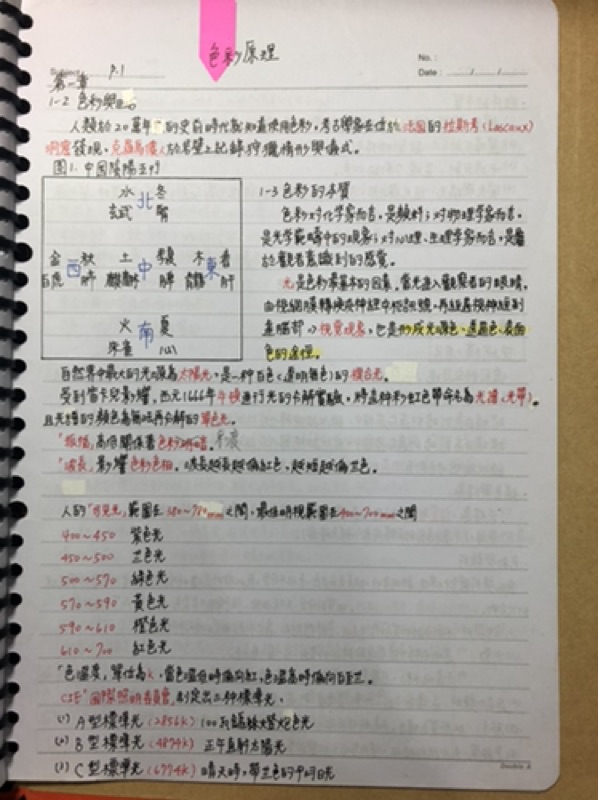 色彩原理
No. :
Subject : P.1
Date : / /
第一章
1-2 色彩與
人類於20萬年的史前時代就知道使用色彩。考古學家在位於法國的拉斯考(Lascaux)
洞窟發現，克羅馬儂人於岩壁上記錄狩獵情形與儀式。
圖1. 中国陰陽五行
水 冬
北
玄武 腎
金 秋 土 木 春
西 中 東
白虎 肺 麒麟 脾 青龍 肝
火 夏
南
朱雀 心
1-3 色彩的本質
色彩對化學家而言，是顏料；對物理學家而言，
是光學範疇中的現象；對心理、生理學家而言，是屬
於觀者意識到的感覺。
光是色彩最基本的因素，當光進入觀察者的眼睛，
由從網膜轉換成神經中樞訊號，再經
→視覺現象，也是形成光源色、透過色、表面
色的途徑。
自然界中最大的光源為太陽光，是一種白色(透明無色)的複合光。
受到笛卡兒影響，西元1666年牛頓進行光的分解實驗，將這種彩虹色帶命名為光譜(光帶)。
且光譜的顏色為無法再分解的單色光。
「振幅」高低關係著色彩明暗。
「波長」影響色彩色相。波長越長越偏紅色、越短越偏藍色。
人的「可見光」範圍在380~780nm之間，最佳明視範圍在400~700nm之間
400~450 紫色光
450~500 藍色光
500~570 綠色光
570~590 黃色光
590~610 橙色光
610~700 紅色光
「色溫度」單位為K，當色溫低時偏向紅，色溫高時偏向白至藍。
CIE"國際照明委員會"制定出三種標準光。
(1) A型標準光(2856K) 100瓦鎢絲火燈炮色光
(2) B型標準光(4874K) 正午直射太陽光
(3) C型標準光(6774K) 晴天時，帶藍色的平均日光
Double A